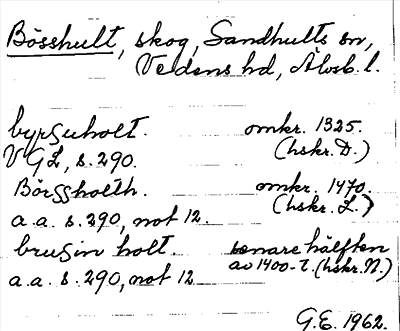 Bösshult, skog, Sandhults sn,
Vedens hd, Älvsb. l.
byrguholt. omkr. 1325.
VGL, s. 290. (hskr. D.)
Börgholth. omkr. 1470.
a.a. s. 290, not 12. (hskr. L.)
brugin holt. senare hälften
a.a. s. 290, not 12 av 1400-t. (hskr. N.)
G.E. 1962.